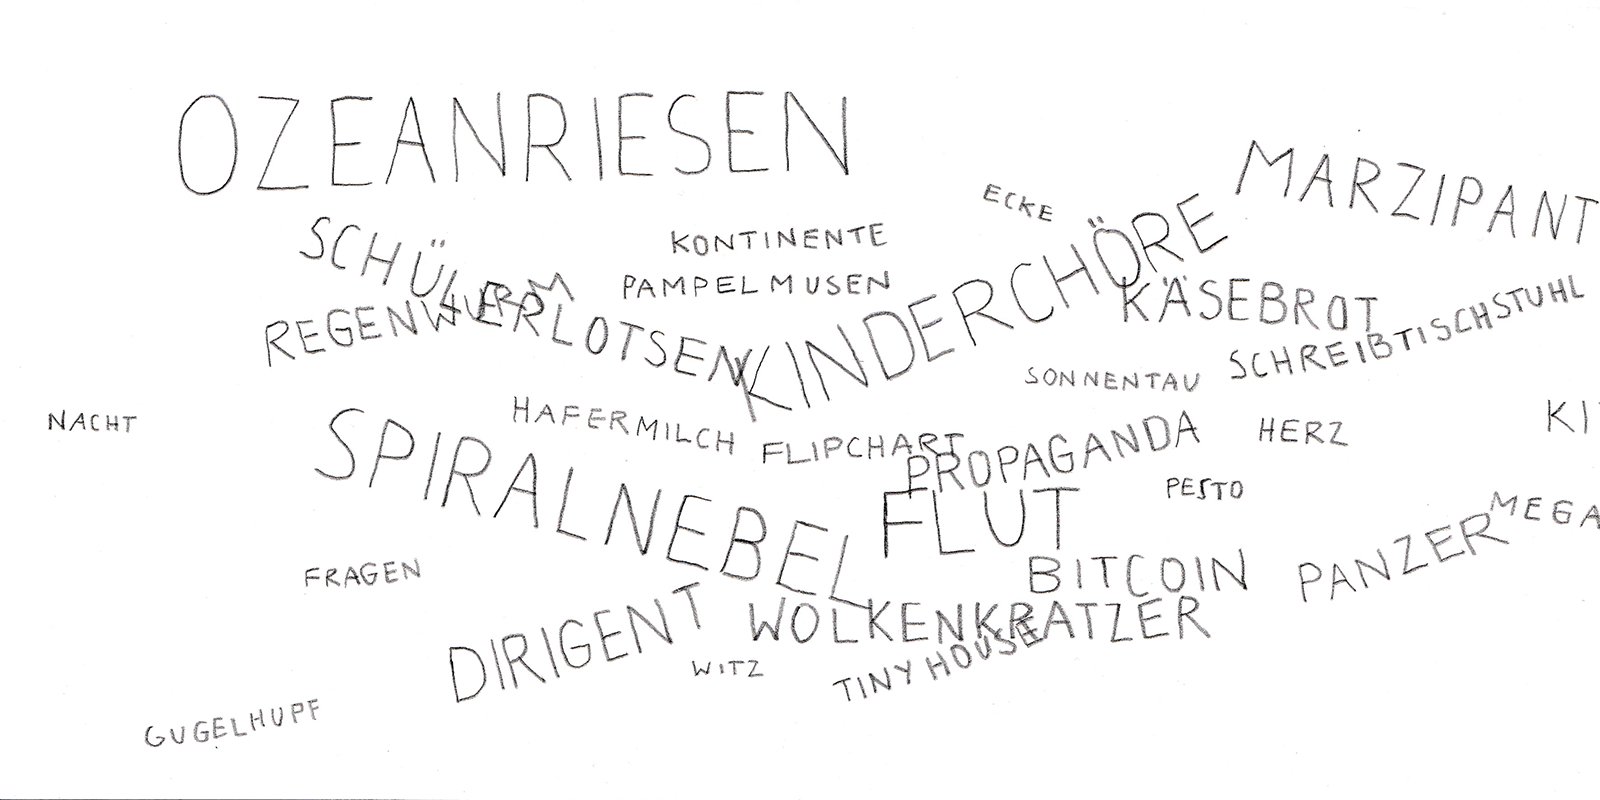 OZEANRIESEN
MARZIPANT
ECKE
SCHÜLERLOTSEN
KONTINENTE
KINDERCHÖRE
PAMPELMUSEN
KÄSEBROT
REGENWURM
SCHREIBTISCHSTUHL
SONNENTAU
NACHT
HAFERMILCH
FLIPCHART
PROPAGANDA
HERZ
KI
SPIRALNEBEL
FLUT
PESTO
MEGA
FRAGEN
BITCOIN
PANZER
DIRIGENT
WOLKENKRATZER
WITZ
TINY HOUSE
GUGELHUPF